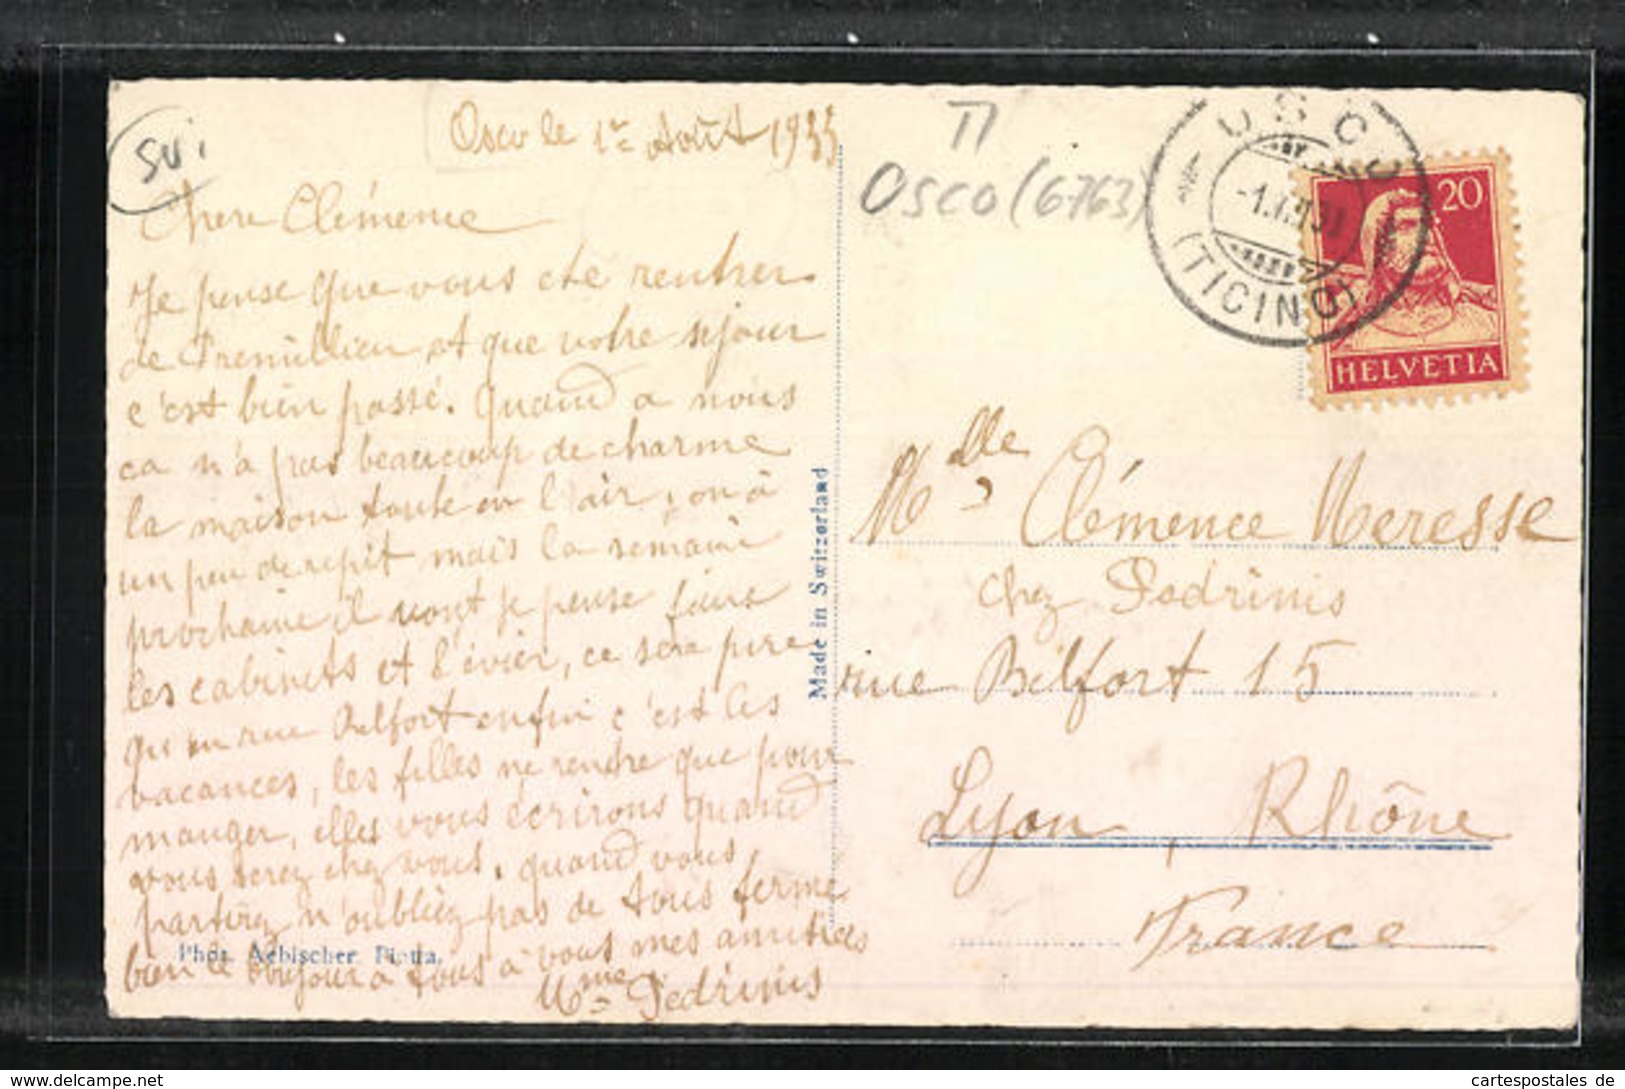 Osco le 1er Août 1933
Chere Clémence
Je pense que vous ete rentrer
de Premillieu et que votre séjour
c'est bien passé. Quand a nous
ca n'a pas beaucoup de charme
la maison toute en l'air, on à
un peu de repit mais la semaine
prochaine il vont je pense faire
les cabinets et l'évier, ce sera pire
qu'en rue Belfort enfin c'est les
vacances, les filles ne rentre que pour
manger, elles vous écrirons quand
vous serez chez vous, quand vous
partirez n'oubliez pas de tous ferme
bien le bonjour a tous à vous mes amitiés
Mme Pedrinis
Phot. Aebischer Piotta.
Made in Switzerland
SUI
TI
OSCO (6763)
OSCO
(TICINO)
20
HELVETIA
Melle Clémence Meresse
chez Pedrinis
rue Belfort 15
Lyon, Rhône
France
cartespostales de